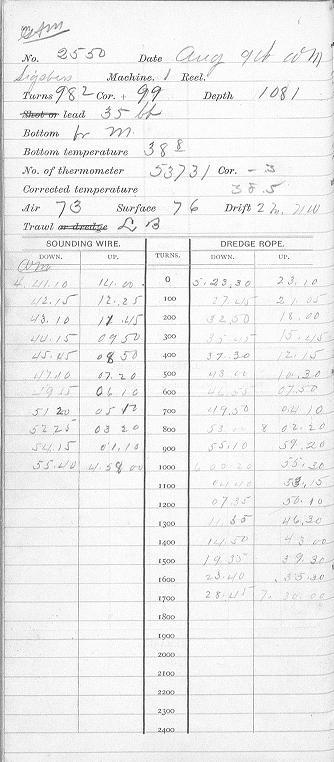 No. 2550 Date Aug 9th
Sigsbees Machine. 1 Reel.
Turns 982 Cor. + 99 Depth 1081
Shot or lead 35 lb
Bottom br m.
Bottom temperature 38 8
No. of thermometer 53731 Cor. - 3
Corrected temperature 38.5
Air 73 Surface 76 Drift
Trawl or dredge L B
SOUNDING WIRE. TURNS. DREDGE ROPE.
DOWN. UP. DOWN. UP.
4.41.10 14.00 0 5.23.30 23.10
42.15 12.25 100 27.45 21.05
43.10 11.45 200 32.50 18.00
44.15 09.50 300 35.45 15.45
45.45 08.50 400 37.30 12.15
47.10 07.20 500 43.00 10.30
06.10 600 46.55 07.50
51.20 05.10 700 49.50 04.10
52.25 03.20 800 53.00 8 02.20
54.15 01.10 900 55.10 59.20
55.40 4.58.00 1000 6 00.20 55.30
1100 04.40 53.15
1200 07.35 50.10
1300 11.35 46.30
1400 14.50 43.00
1500 19.35 39.30
1600 23.40 35.30
1700 28.45 7.30.00
1800
1900
2000
2100
2200
2300
2400